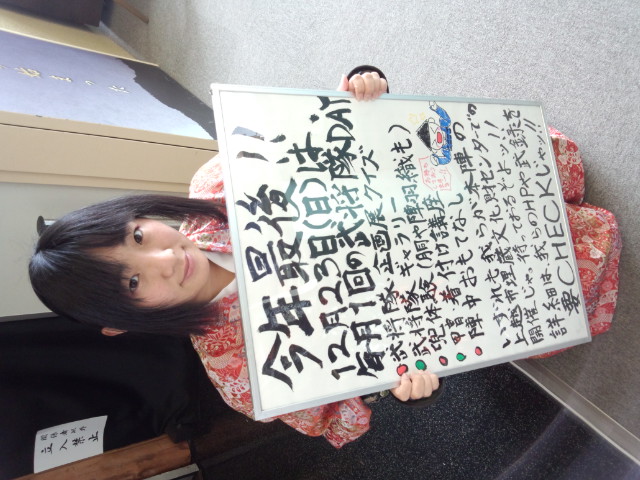 今年最後!!
12月23日(日)は、
毎月1回の武将隊DAY
武将隊企画展クイズ
武将隊ギャラリー
砲体験(胴や陣羽織も)
甲冑着付け講座
陣中おもてなし
いずれも我らが本陣の
上越市埋蔵文化財センターでの
開催じゃ。待っておるぞよッ!!
詳細は、我らのHPや武録を
要CHECKじゃッ!!
関係者以外
立入禁止